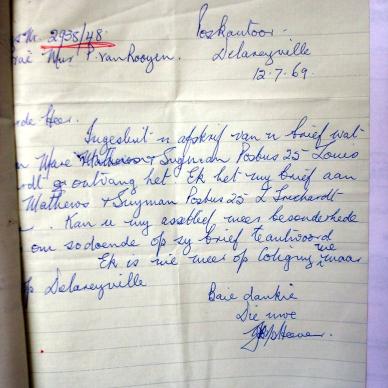 2938/48.
Mnr P. van Rooyen.
Poskantoor
Delareyville
12.7.69.
Heer.
Ingesluit 'n afskrif van 'n brief wat
Mare Mathews & Suyman Posbus 25 Louis
ontvang het. Ek het my brief aan
Mathews & Suyman Posbus 25 L Trichardt
. Kan u my asseblief meer besonderhede
om sodoende op sy brief te antwoord
Ek is nie meer op nie maar
op Delareyville
Baie dankie
Die uwe